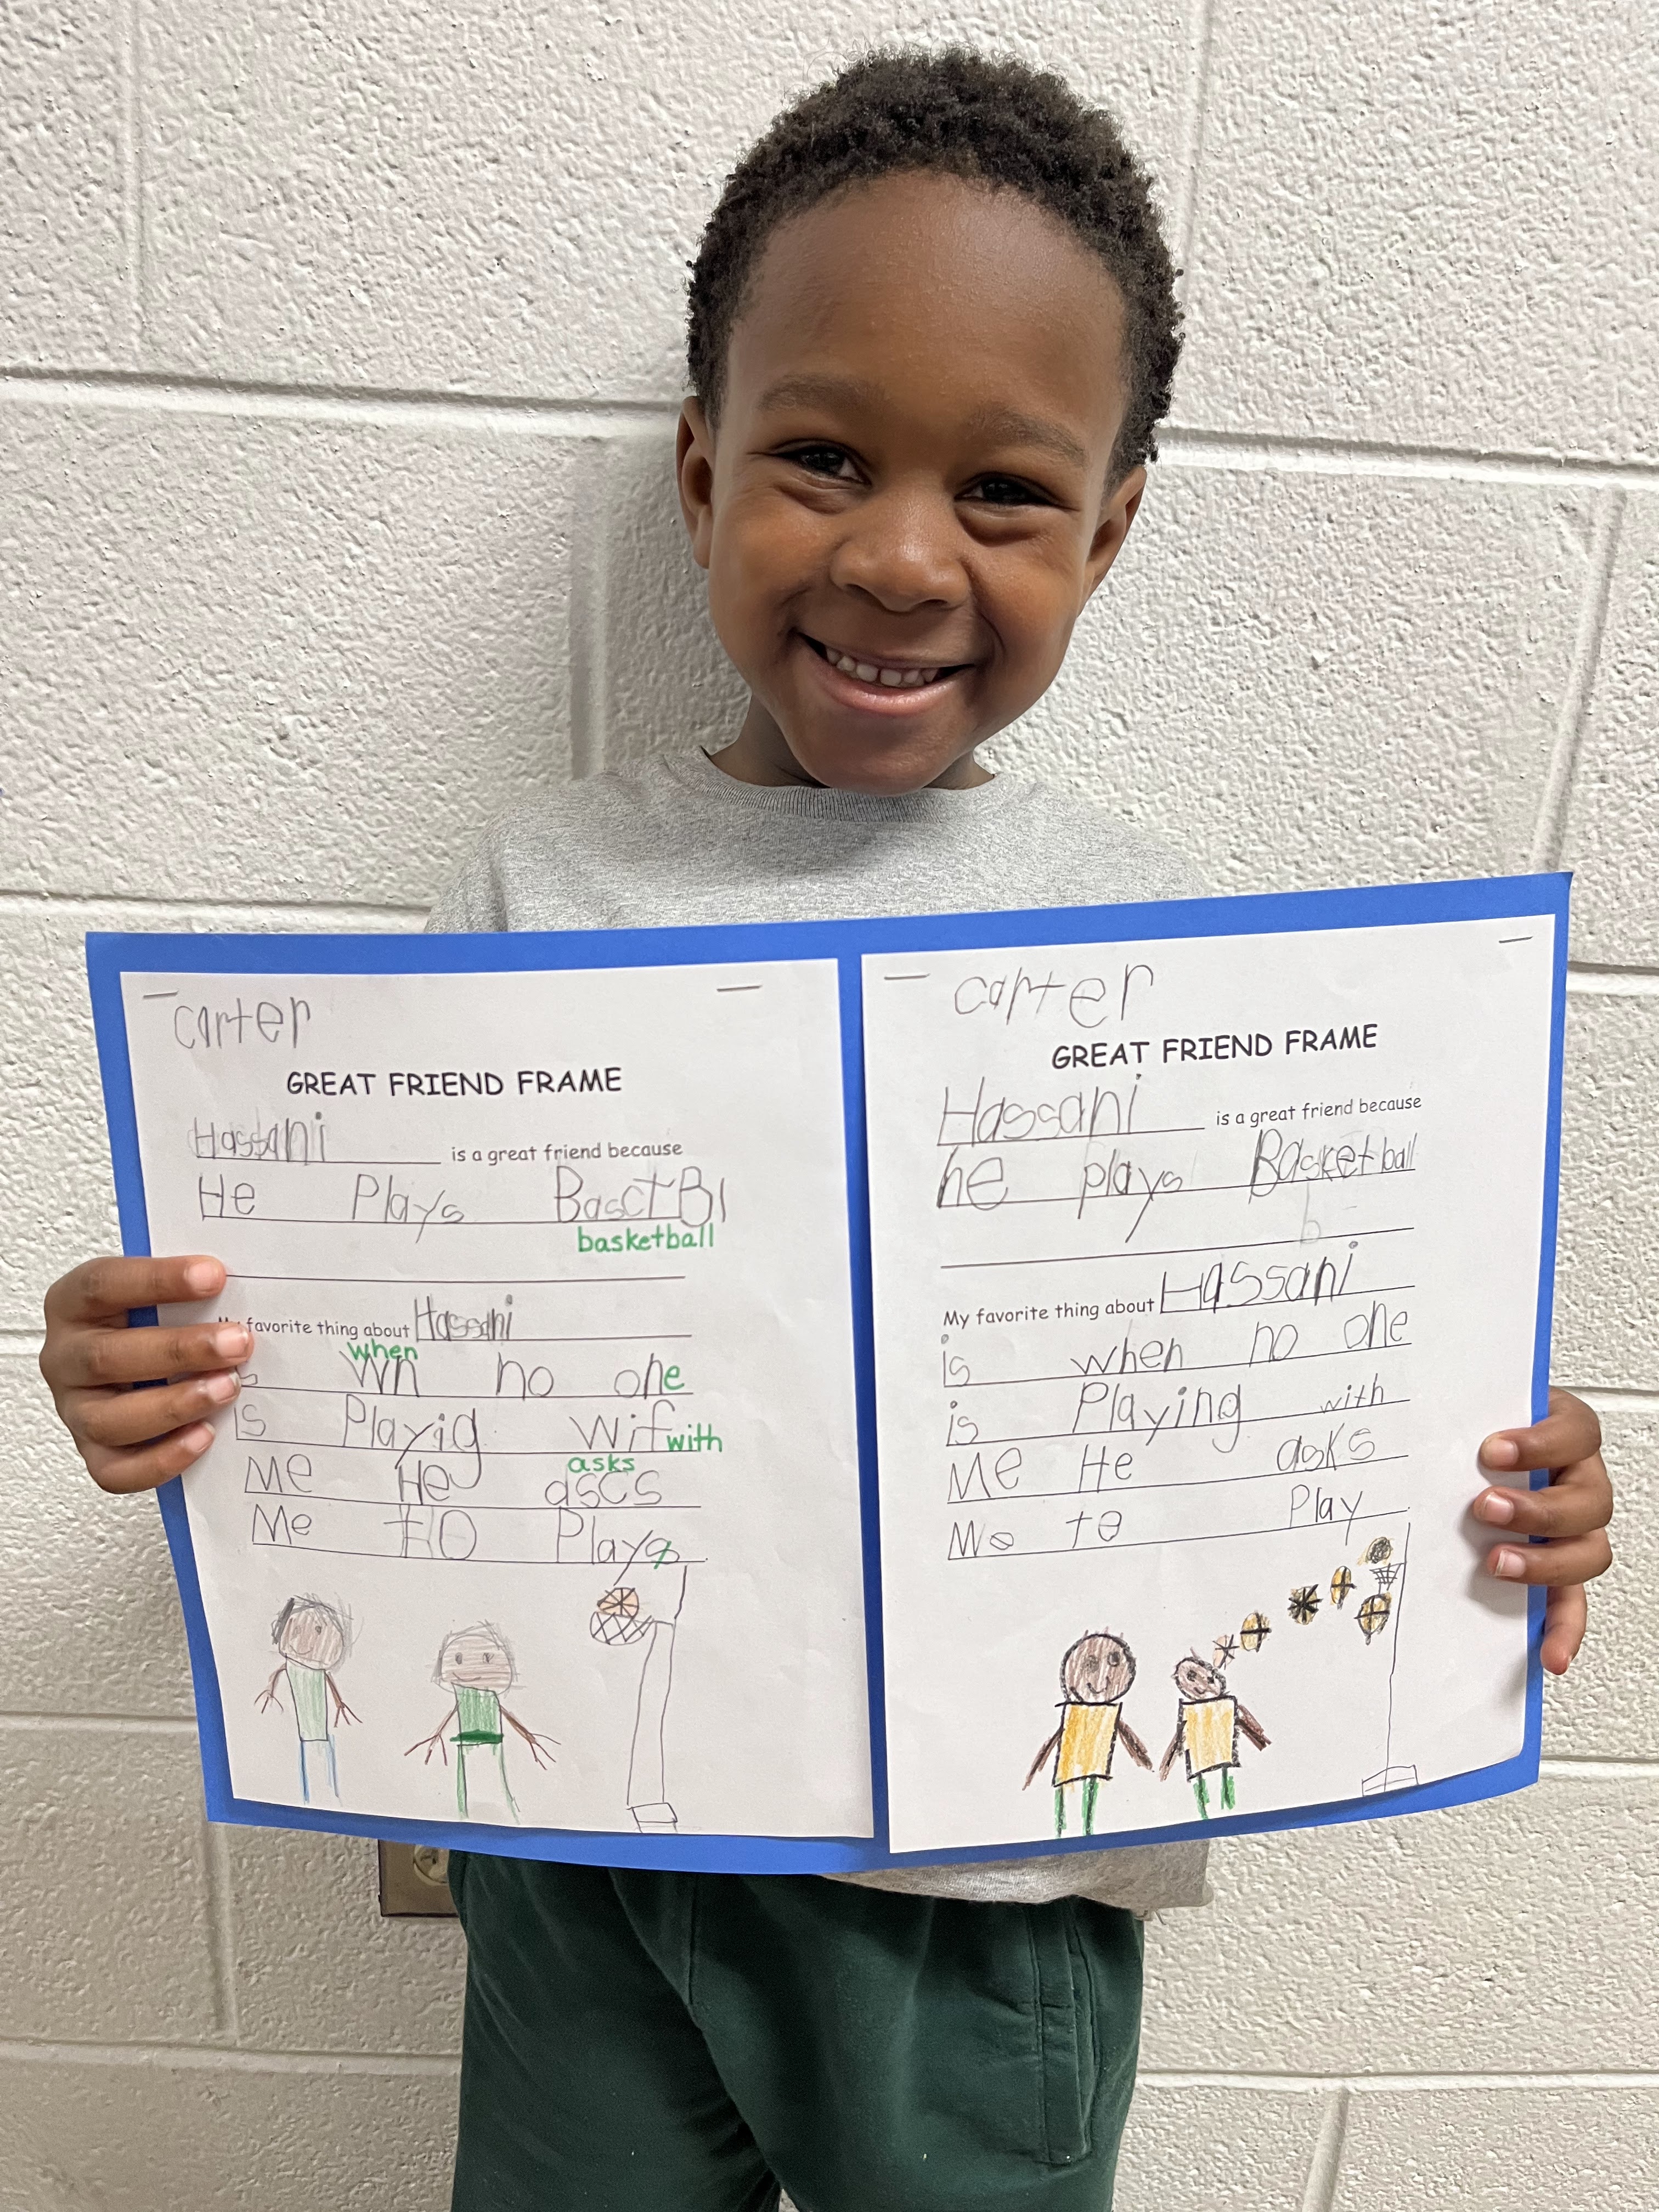 carter
GREAT FRIEND FRAME
Hassani is a great friend because
He Plays BasctBl
basketball
favorite thing about Hassani
when
Wn no one
is Playig wif with
asks
Me He ascs
Me to Plays
carter
GREAT FRIEND FRAME
Hassani is a great friend because
he plays Basketball
b
My favorite thing about Hassani
is when no one
is Playing with
Me He asks
Me to Play